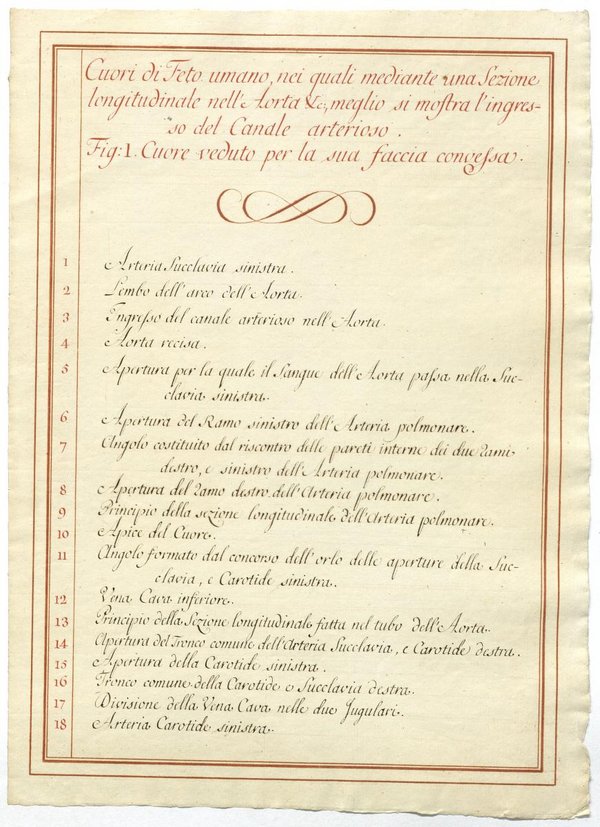 Cuori di Feto umano, nei quali mediante una Sezione
longitudinale nell'Aorta &c, meglio si mostra l'ingres-
so del Canale arterioso.
Fig: 1. Cuore veduto per la sua faccia convessa.
1 Arteria Succlavia sinistra.
2 Lembo dell'arco dell'Aorta.
3 Ingresso del canale arterioso nell'Aorta.
4 Aorta recisa.
5 Apertura per la quale il Sangue dell'Aorta passa nella Suc-
clavia sinistra.
6 Apertura del Ramo sinistro dell'Arteria polmonare.
7 Angolo costituito dal riscontro delle pareti interne dei due Rami
destro, e sinistro dell'Arteria polmonare.
8 Apertura del Ramo destro dell'Arteria polmonare.
9 Principio della sezione longitudinale dell'Arteria polmonare.
10 Apice del Cuore.
11 Angolo formato dal concorso dell'orlo delle aperture della Suc-
clavia, e Carotide sinistra.
12 Vena Cava inferiore.
13 Principio della Sezione longitudinale fatta nel tubo dell'Aorta.
14 Apertura del Tronco comune dell'Arteria Succlavia, e Carotide destra.
15 Apertura della Carotide sinistra.
16 Tronco comune della Carotide e Succlavia destra.
17 Divisione della Vena Cava nelle due Jugulari.
18 Arteria Carotide sinistra.